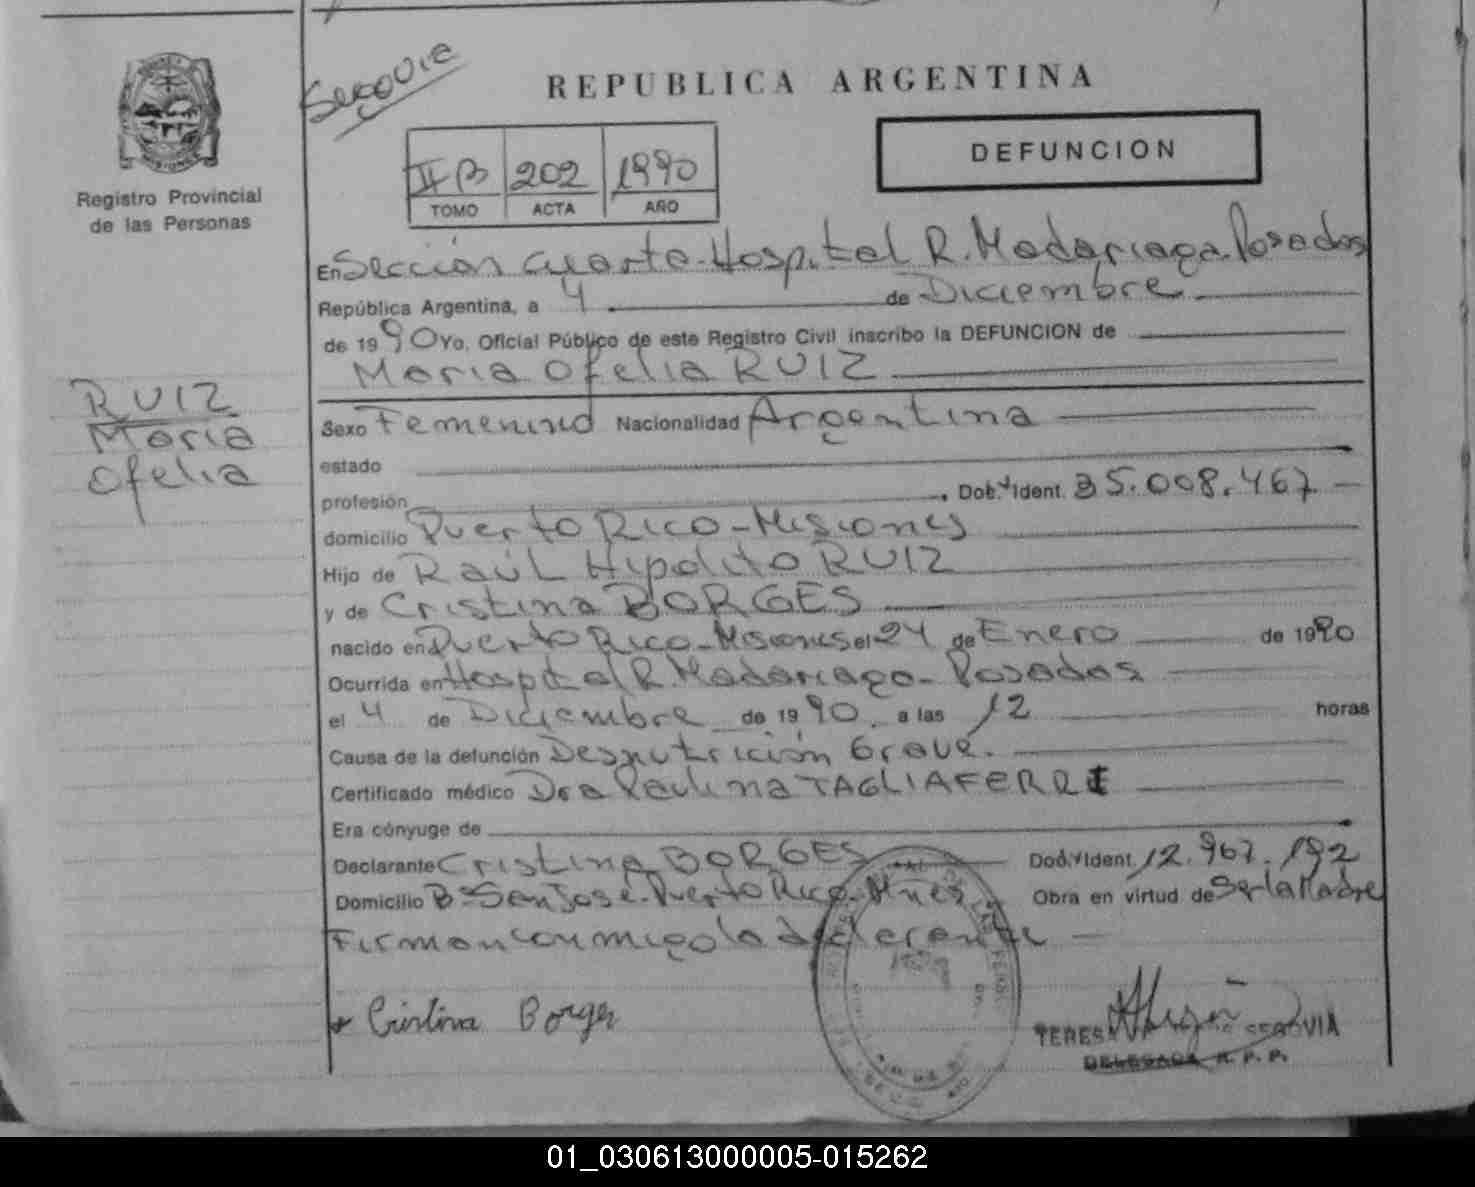 Segovia
REPUBLICA ARGENTINA
DEFUNCION
II B 202 1990
TOMO ACTA AÑO
MISIONES
Registro Provincial
de las Personas
En Sección Cuarta - Hospital R. Madariaga. Posadas
República Argentina, a 4 de Diciembre
de 1990 Yo, Oficial Público de este Registro Civil inscribo la DEFUNCION de
Maria Ofelia RUIZ
RUIZ
Maria
Ofelia
Sexo Femenino Nacionalidad Argentina
estado
profesión Doc. Ident. 35.008.467
domicilio Puerto Rico - Misiones
Hijo de Raúl Hipolito RUIZ
y de Cristina BORGES
nacido en Puerto Rico - Misiones el 24 de Enero de 1990
Ocurrida en Hospital R. Madariaga - Posadas
el 4 de Diciembre de 1990 a las 12 horas
Causa de la defunción Desnutrición Grave.
Certificado médico Dra Paulina TAGLIAFERRI
Era cónyuge de
Declarante Cristina BORGES Doc. Ident. 12.967.192
Domicilio Bº San Jose - Puerto Rico - Mnes Obra en virtud de Ser la Madre
Firman conmigo la declarante
Cristina Borges
TERESA SEGOVIA
DELEGADA R. P. P.
01_030613000005-015262